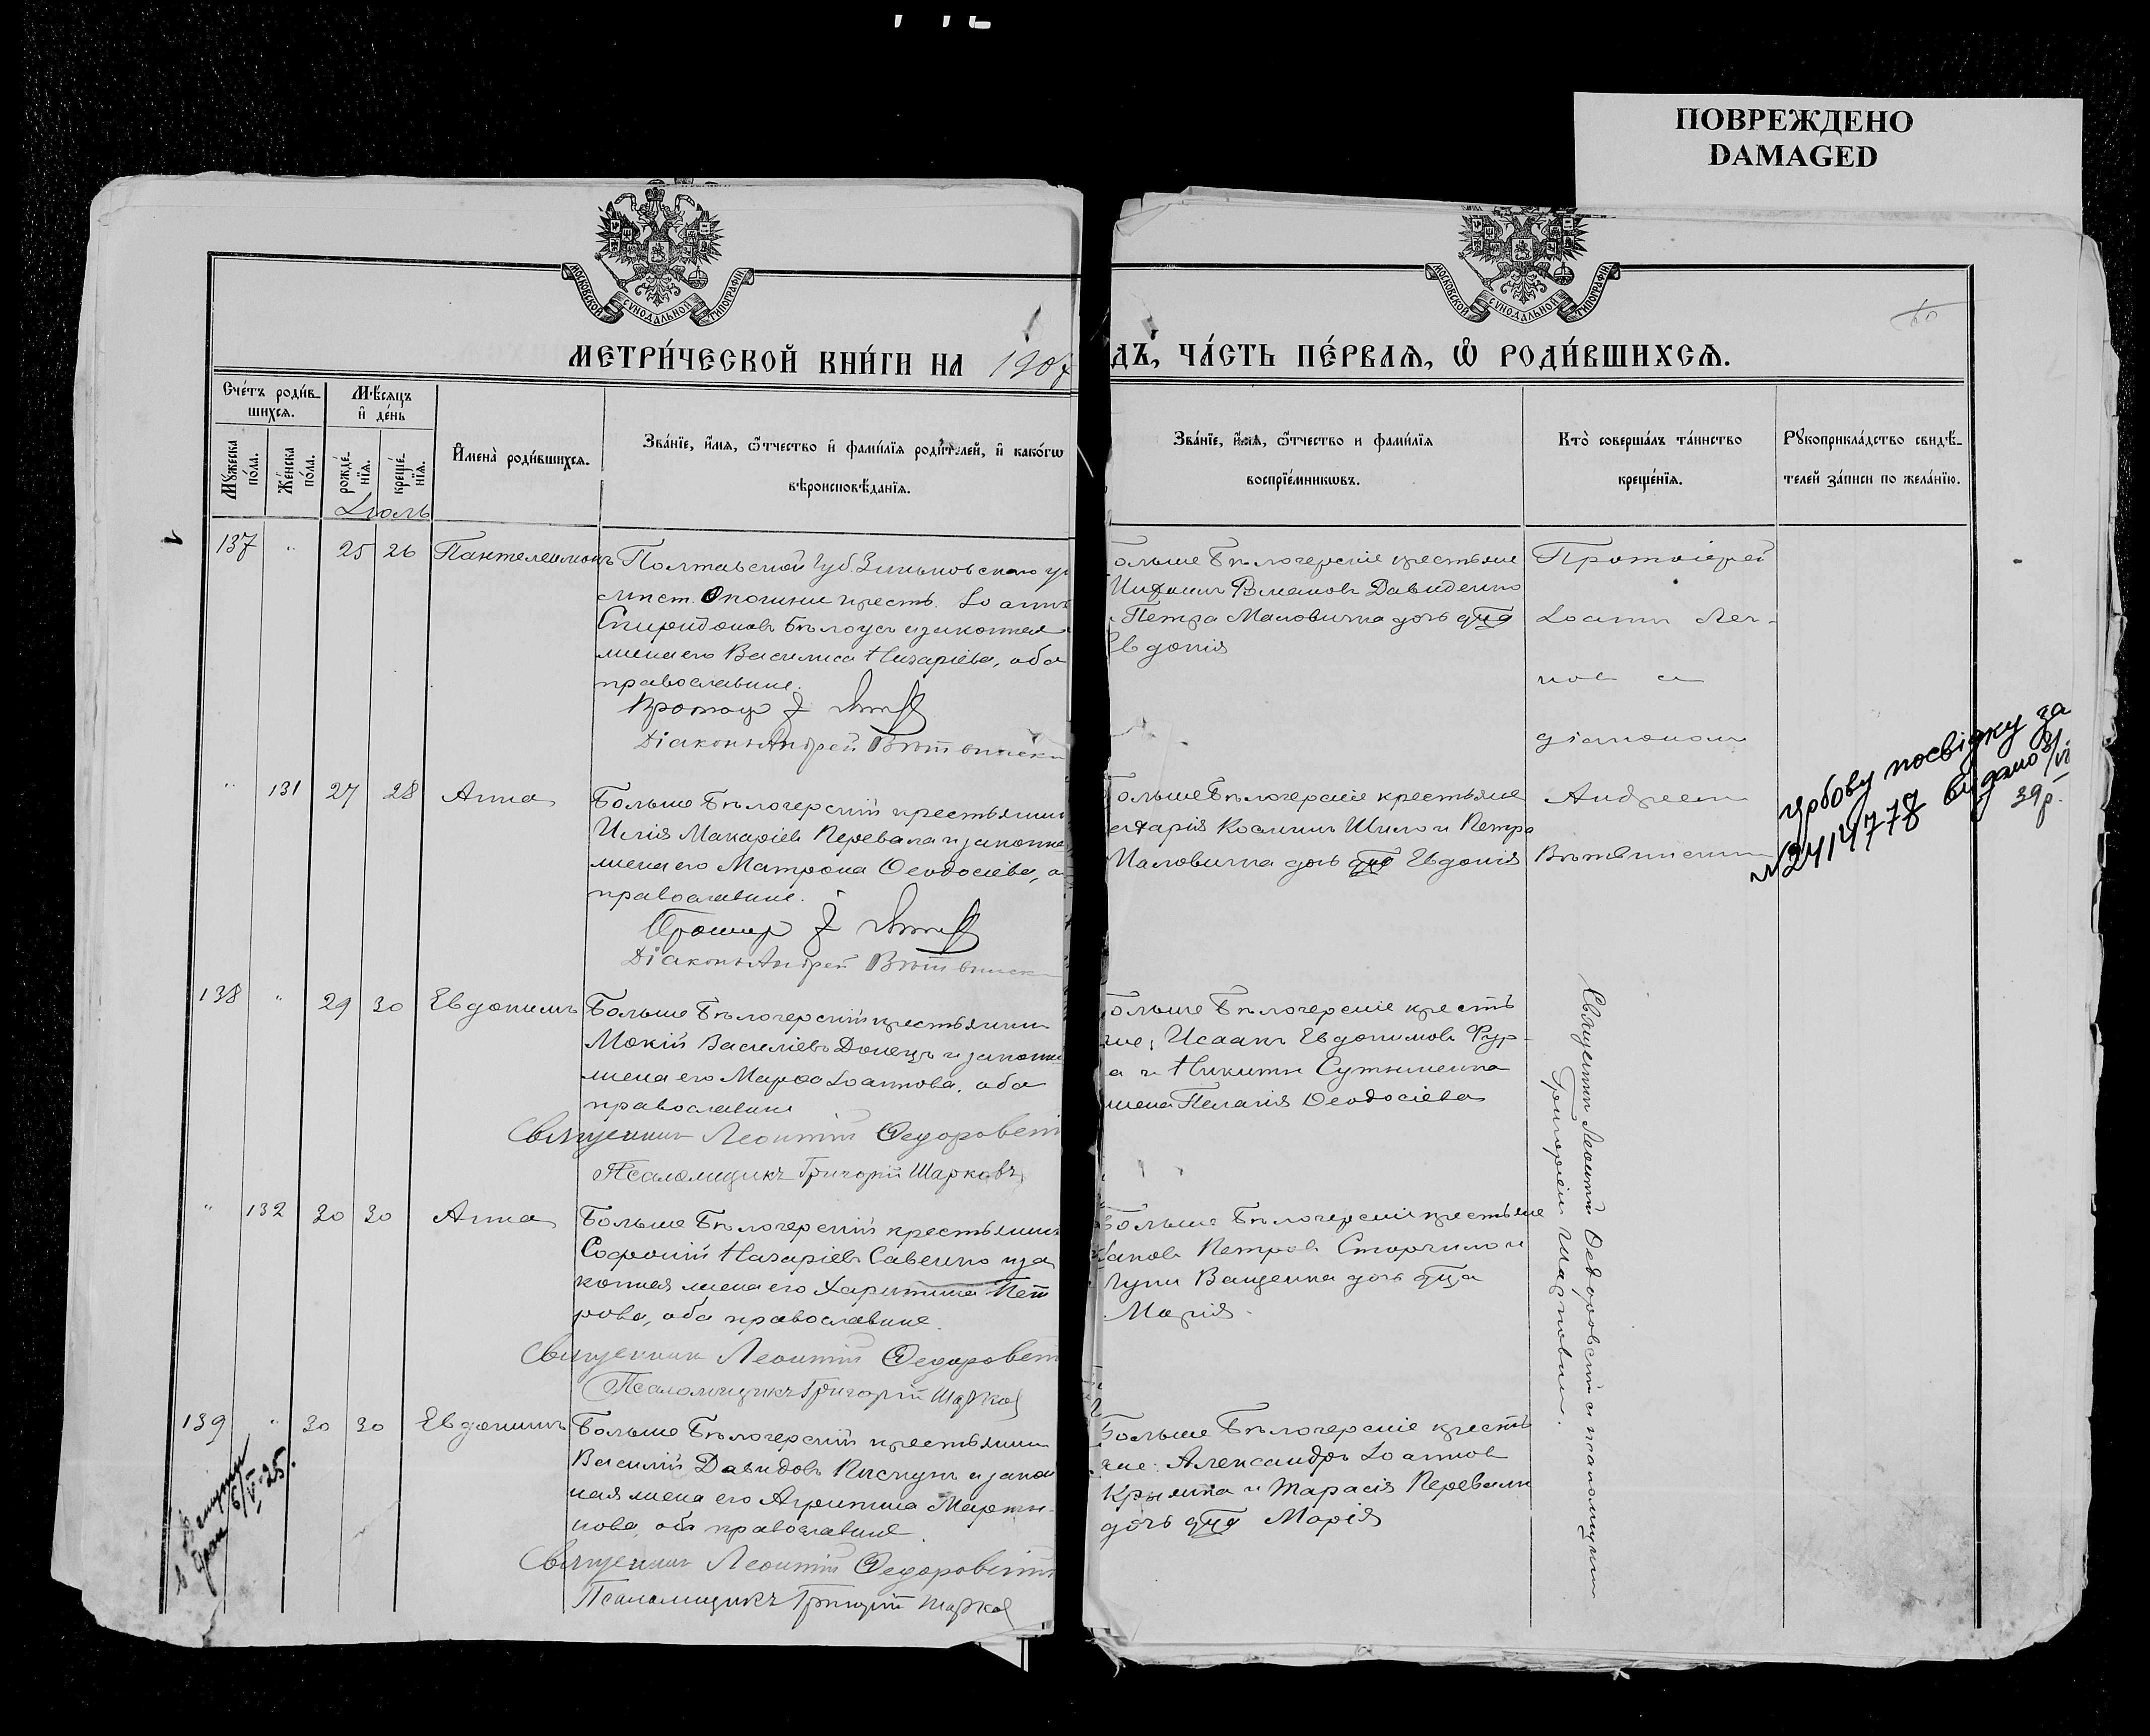 ПОВРЕЖДЕНО
DAMAGED
МОСКОВСКОЙ СУНОДАЛЬНОЙ ТИПОГРАФІИ
МОСКОВСКОЙ СУНОДАЛЬНОЙ ТИПОГРАФІИ
МЕТРИ́ЧЕСКОЙ КНИ́ГИ НА 1907
ДЪ, ЧА́СТЬ ПЕ́РВАѦ, Ѽ РОДИ́ВШИХСѦ.
Сче́тъ роди́в-
шихсѧ.
Мꙋ́жеска
по́ла.
Же́нска
по́ла.
Мѣ́сѧцъ
и҆ де́нь
рожде́-
нїѧ.
креще́-
нїѧ.
И҆мена̀ роди́вшихсѧ.
Зва́нїе, и҆́мѧ, ѻ҆́тчество и҆ фами́лїѧ роди́телей, и҆ како́гѡ
вѣроисповѣ́данїѧ.
Зва́нїе, и҆́мѧ, ѻ҆́тчество и фами́лїѧ
воспрїе́мникѡвъ.
Кто̀ соверша́лъ та́инство
креще́нїѧ.
Рꙋкоприкла́дство свидѣ́-
телей за́писи по жела́нїю.
Іюль
137 " 25 26 Пантелеимонъ
Полтавской Губ. Зиньковскаго у
мѣст. Опошни крест. Іоаннъ
Спиридоновъ Бѣлоусъ и законная
жена его Василиса Назаріева, оба
православные.
Протоіер І
Діаконъ Андрей Вѣтвински
ольше Бѣлозерскіе крестьяне
Романовъ Давиденко
Петра Маловичка дочь дѣвца
Евдокія
Протоіерей
Іоаннъ
діакономъ
Андреем
Вѣтвинскимъ
" 131 27 28 Анна
Больше Бѣлозерскій крестьянин
Илія Макаріевъ Перевала и законна
жена его Матрона Ѳеодосіева, о
православные.
Протоіер І
Діаконъ Андрей Вѣтвинск
ольше Бѣлозерскіе крестьяне
ектарія Космин Шило и Петра
Маловичка дочь дѣвца Евдокія
цю посвідку за
№2414778 видано 3/VI
39 р.
138 " 29 30 Евдокимъ
Больше Бѣлозерскій крестьянин
Мокій Василіевъ Донецъ и законн
жена его Марѳа Іоаннова, оба
православные
Священникъ Леонтій Ѳедоровск
Псаломщикъ Григорій Шарковъ
ольше Бѣлозерскіе кресть
яне, Исаакъ Евдокимовъ Фур-
а и Никиты Сутыненка
жена Пелагія Ѳеодосіева
Священник Леонтій Ѳедоровскій с псаломщиком
Григоріем Шарковым.
" 132 30 30 Анна
Больше Бѣлозерскій крестьянин
Софроній Назаріевъ Савенко и за
конная жена его Харитина Пет
рова, оба православные.
Священник Леонтій Ѳедоровск
Псаломщикъ Григорій Шарков
Больше Бѣлозерскіе крестьяне
Петровъ Сторчило и
Ващенка дочь дѣвца
Марія.
139 " 30 30 Евдокимъ
Больше Бѣлозерскій крестьянин
Василій Давидовъ Пискунъ и закон
ная жена его Агрипина Марты-
нова, оба православные.
Священник Леонтій Ѳедоровскій
Псаломщикъ Григорій Шарков
Больше Бѣлозерскіе кресть
яне: Александръ Іоаннов
Крымка и Тарасія Перевалы
дочь дѣвца Марія
6/V 25.